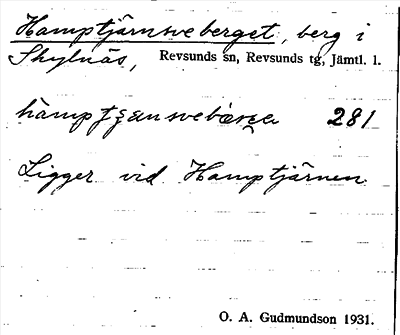 Hamptjärnsveberget, berg i
Skylnäs, Revsunds sn, Revsunds tg, Jämtl. l.
281
Ligger vid Hamptjärnen
O. A. Gudmundson 1931.